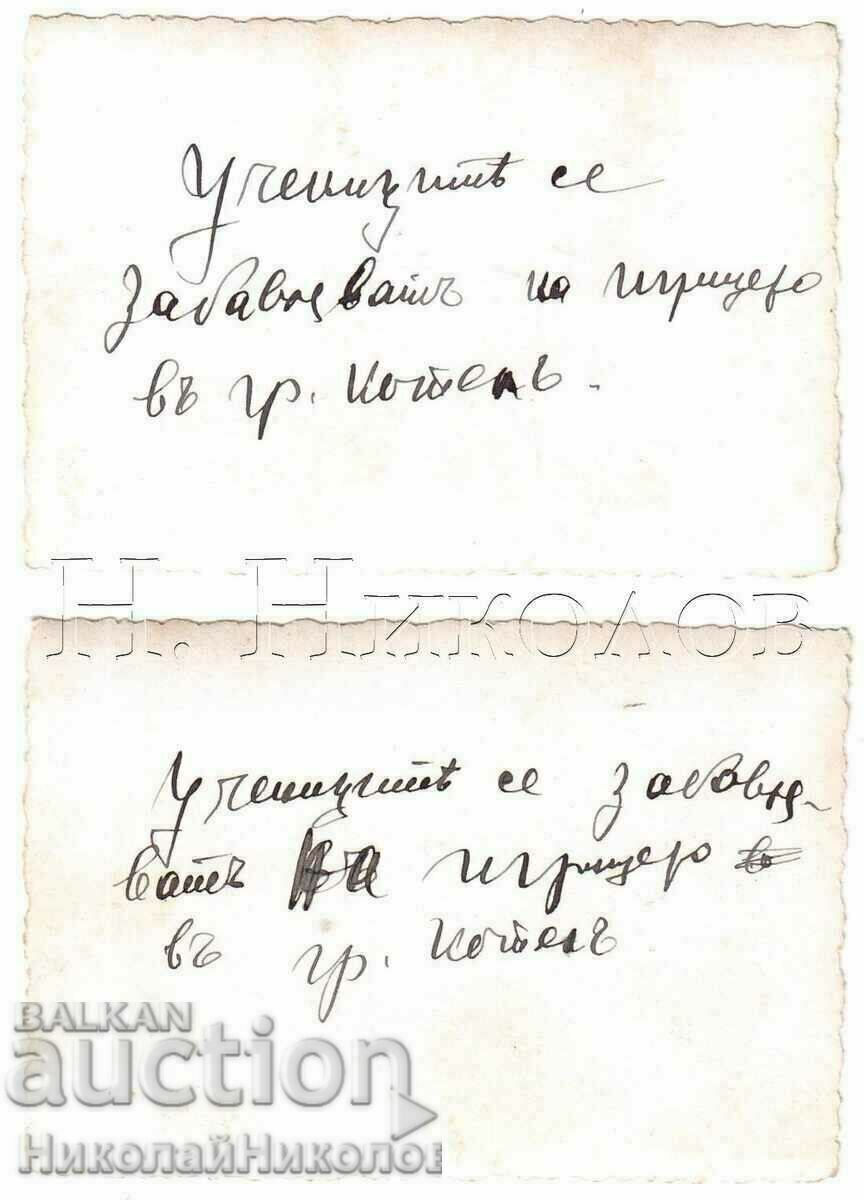 Ученицитѣ се
забавляватъ на игрището
въ гр. Котелъ.
Н. Николов
Ученицитѣ се забавля-
ватъ на игрището
въ гр. Котелъ
BALKAN
auction
НиколайНиколов